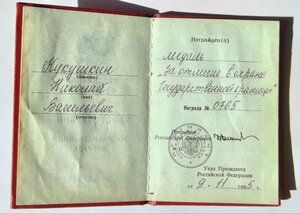 Кукушкин
(фамилия)
Николай
(имя)
Васильевич
(отчество)
Награжден(а)
медаль
За отличие в охране
Государственной границы
Награда № 0765
Президент
Российской Федерации
Указ Президента
Российской Федерации
от 9. 11 1995 г.